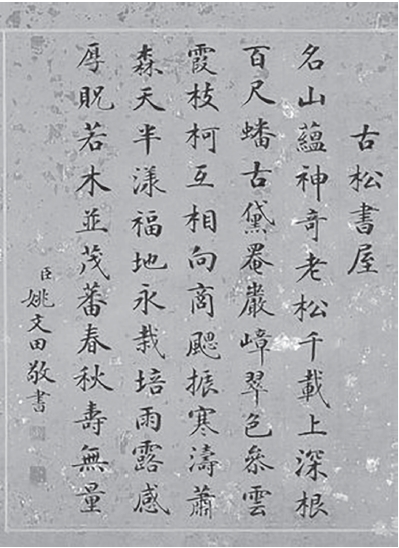 古松書屋
名山蘊神奇老松千載上深根
百尺蟠古黛罨巖嶂翠色叅雲
霞枝柯互相向商颸振寒濤蕭
森天半漾福地永栽培雨露感
厚貺若木並茂蕃春秋壽無量
臣姚文田敬書